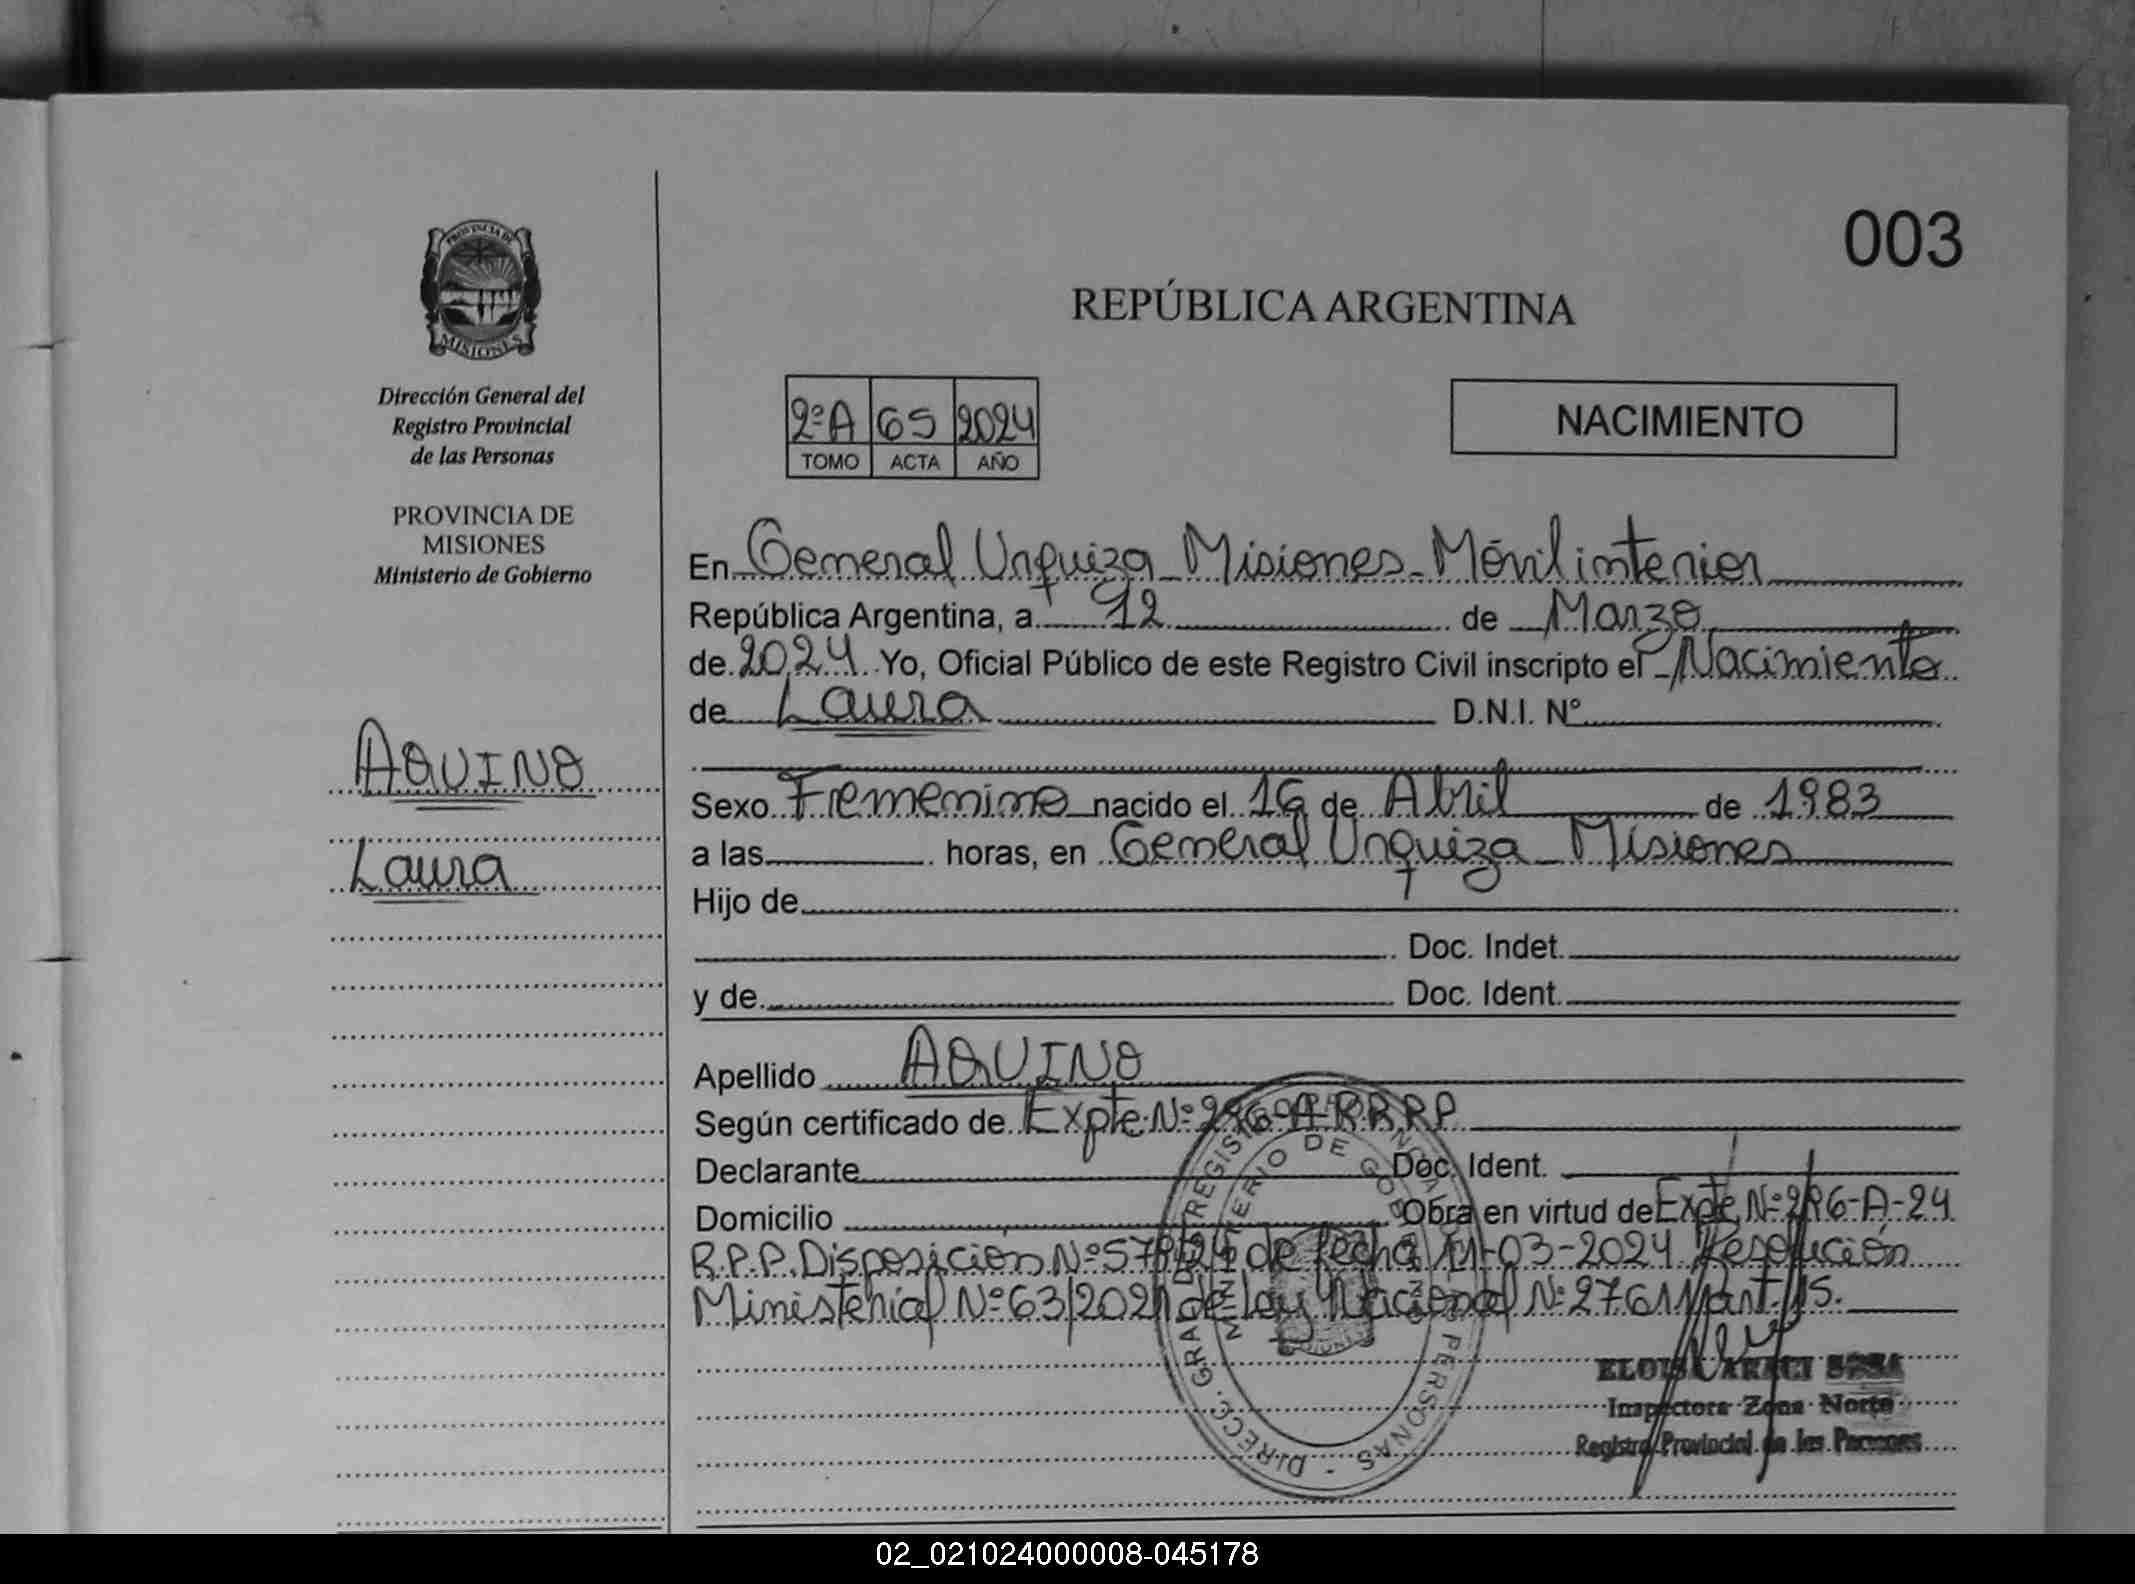 003
PROVINCIA DE
MISIONES
Dirección General del
Registro Provincial
de las Personas
PROVINCIA DE
MISIONES
Ministerio de Gobierno
REPÚBLICA ARGENTINA
2ºA 65 2024
TOMO ACTA AÑO
NACIMIENTO
En General Urquiza - Misiones - Móvil interior
República Argentina, a 12 de Marzo
de 2024 Yo, Oficial Público de este Registro Civil inscripto el Nacimiento
de Laura D.N.I. Nº
AQUINO
Laura
Sexo Femenino nacido el 16 de Abril de 1983
a las horas, en General Urquiza - Misiones
Hijo de
Doc. Indet.
y de Doc. Ident.
Apellido AQUINO
Según certificado de Expte Nº 296-A-R.R.R.P.
Declarante Doc. Ident.
Domicilio Obra en virtud de Expte Nº 296-A-24
R.P.P. Disposición Nº 579/24 de fecha 11-03-2024 Resolución
Ministerial Nº 63/2021 de Ley Nacional Nº 27611 art. 15.
MINISTERIO DE GOBIERNO
DIRECC. GRAL. DE REGISTRO PROVINCIAL DE LAS PERSONAS
ELOISA ARACI SOSA
Inspectora Zona Norte
Registro Provincial de las Personas
02_021024000008-045178